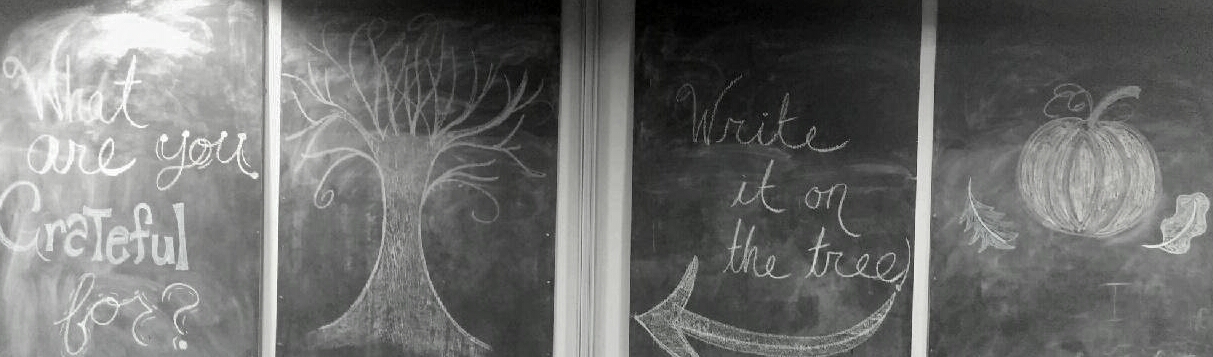 What
are you
Grateful
for?
Write
it on
the tree